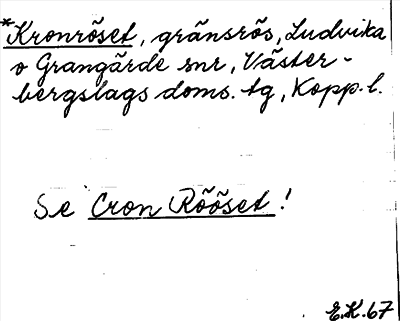 *Kronröset, gränsrös, Ludvika
o Grangärde snr, Väster-
bergslags doms. tg, Kopp. l.
Se Cron Rööset!
E.K. 67